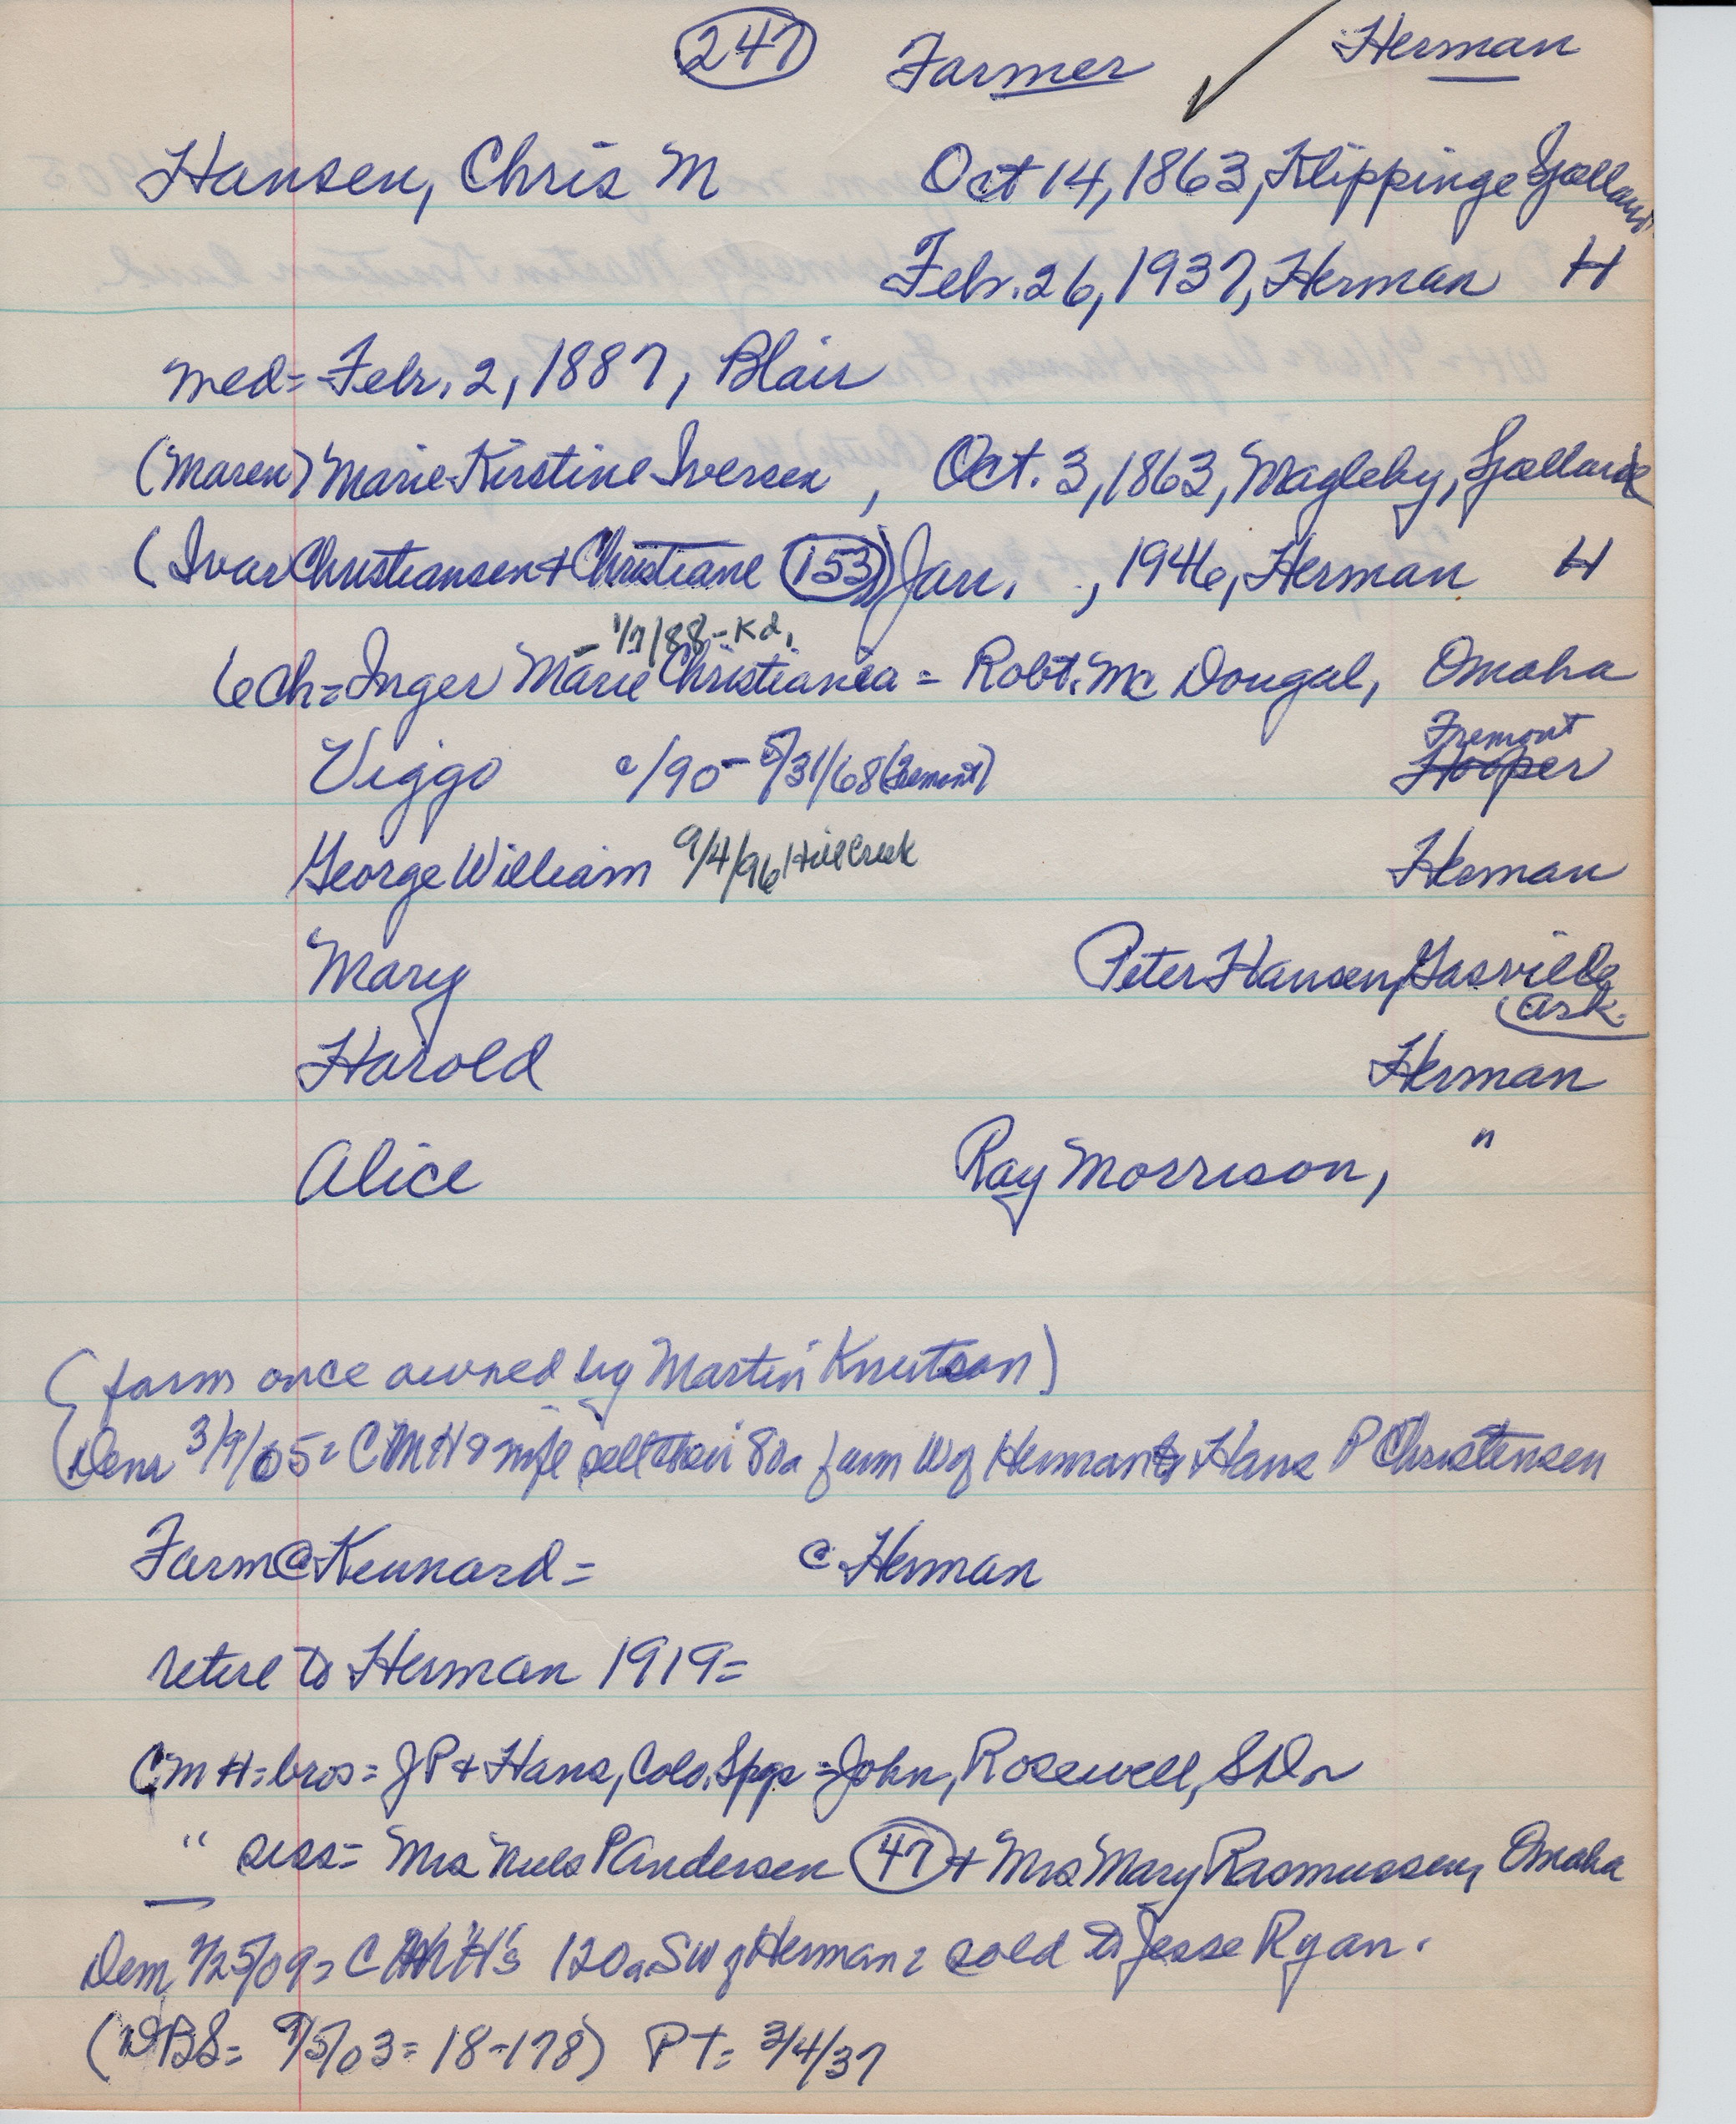 247 Farmer ✓ Herman
Hansen, Chris M Oct 14, 1863, Klippinge Sjælland
Febr. 26, 1937, Herman H
med= Febr. 2, 1887, Blair
(Maren) Marie Kirstine Iversen, Oct. 3, 1863, Magleby, Sjælland
(Ivar Christiansen + Christiane 153) Jan. , 1946, Herman H
- 1/7/88 - Kd.
6 ch= Inger Marie Christiania = Robt. Mc Dougal, Omaha
Fremont
Viggo c/90 - 5/31/68 (Fremont) Hooper
George William 9/4/96 Hill Creek Herman
Mary Peter Hansen, Gasville
Ark.
Harold Herman
Alice Ray Morrison, "
(farm once owned by Martin Knutson)
(Dem 3/9/05= CMH & wife sell their 80a farm W of Herman to Hans P Christensen
Farm @ Kennard= c Herman
retire to Herman 1919=
CMH= bros= JP + Hans, Colo. Spgs = John, Rosewell, SD
" siss= Mrs Niels P Andersen 47 + Mrs Mary Rasmussen, Omaha
Dem 7/25/09= CMH's 120a SW of Herman = sold to Jesse Ryan.
(DBS= 9/5/03= 18-178) PT= 3/4/37